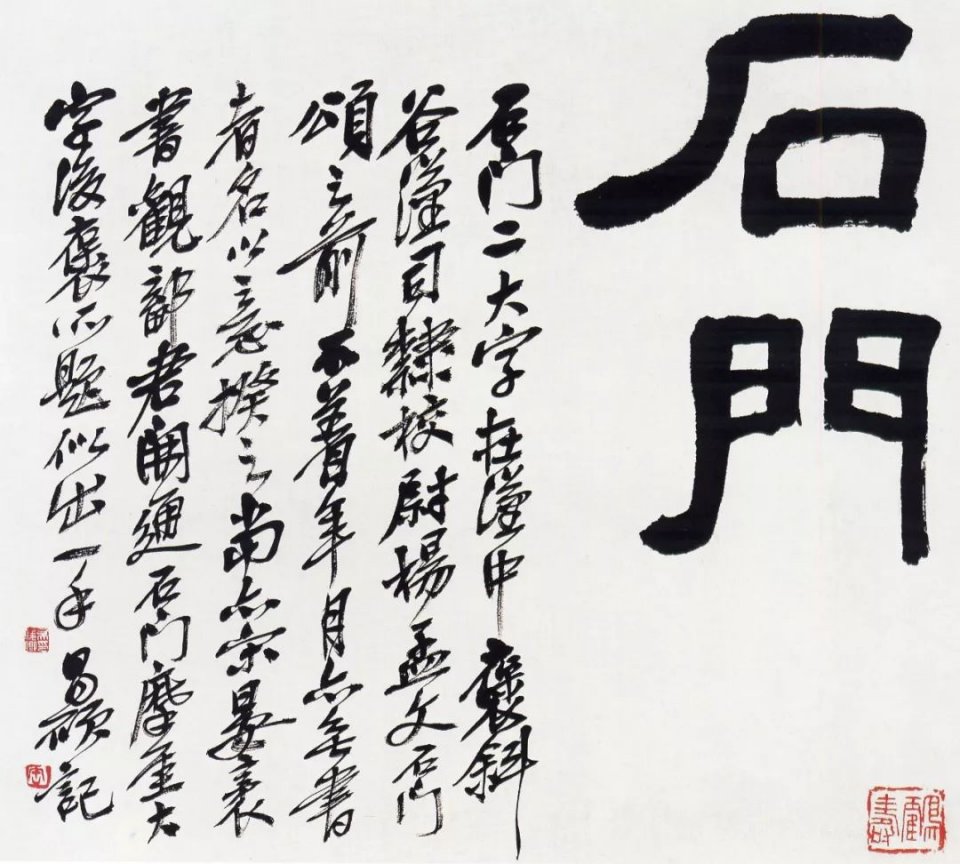 石門
石門二大字在漢中褒斜
谷漢司隸校尉楊孟文石門
頌之前不著年月亦無書
者名以意揆之當亦宋晏袤
書觀鄐君開通石門摩厓大
字後袤所題似出一手
昌碩記